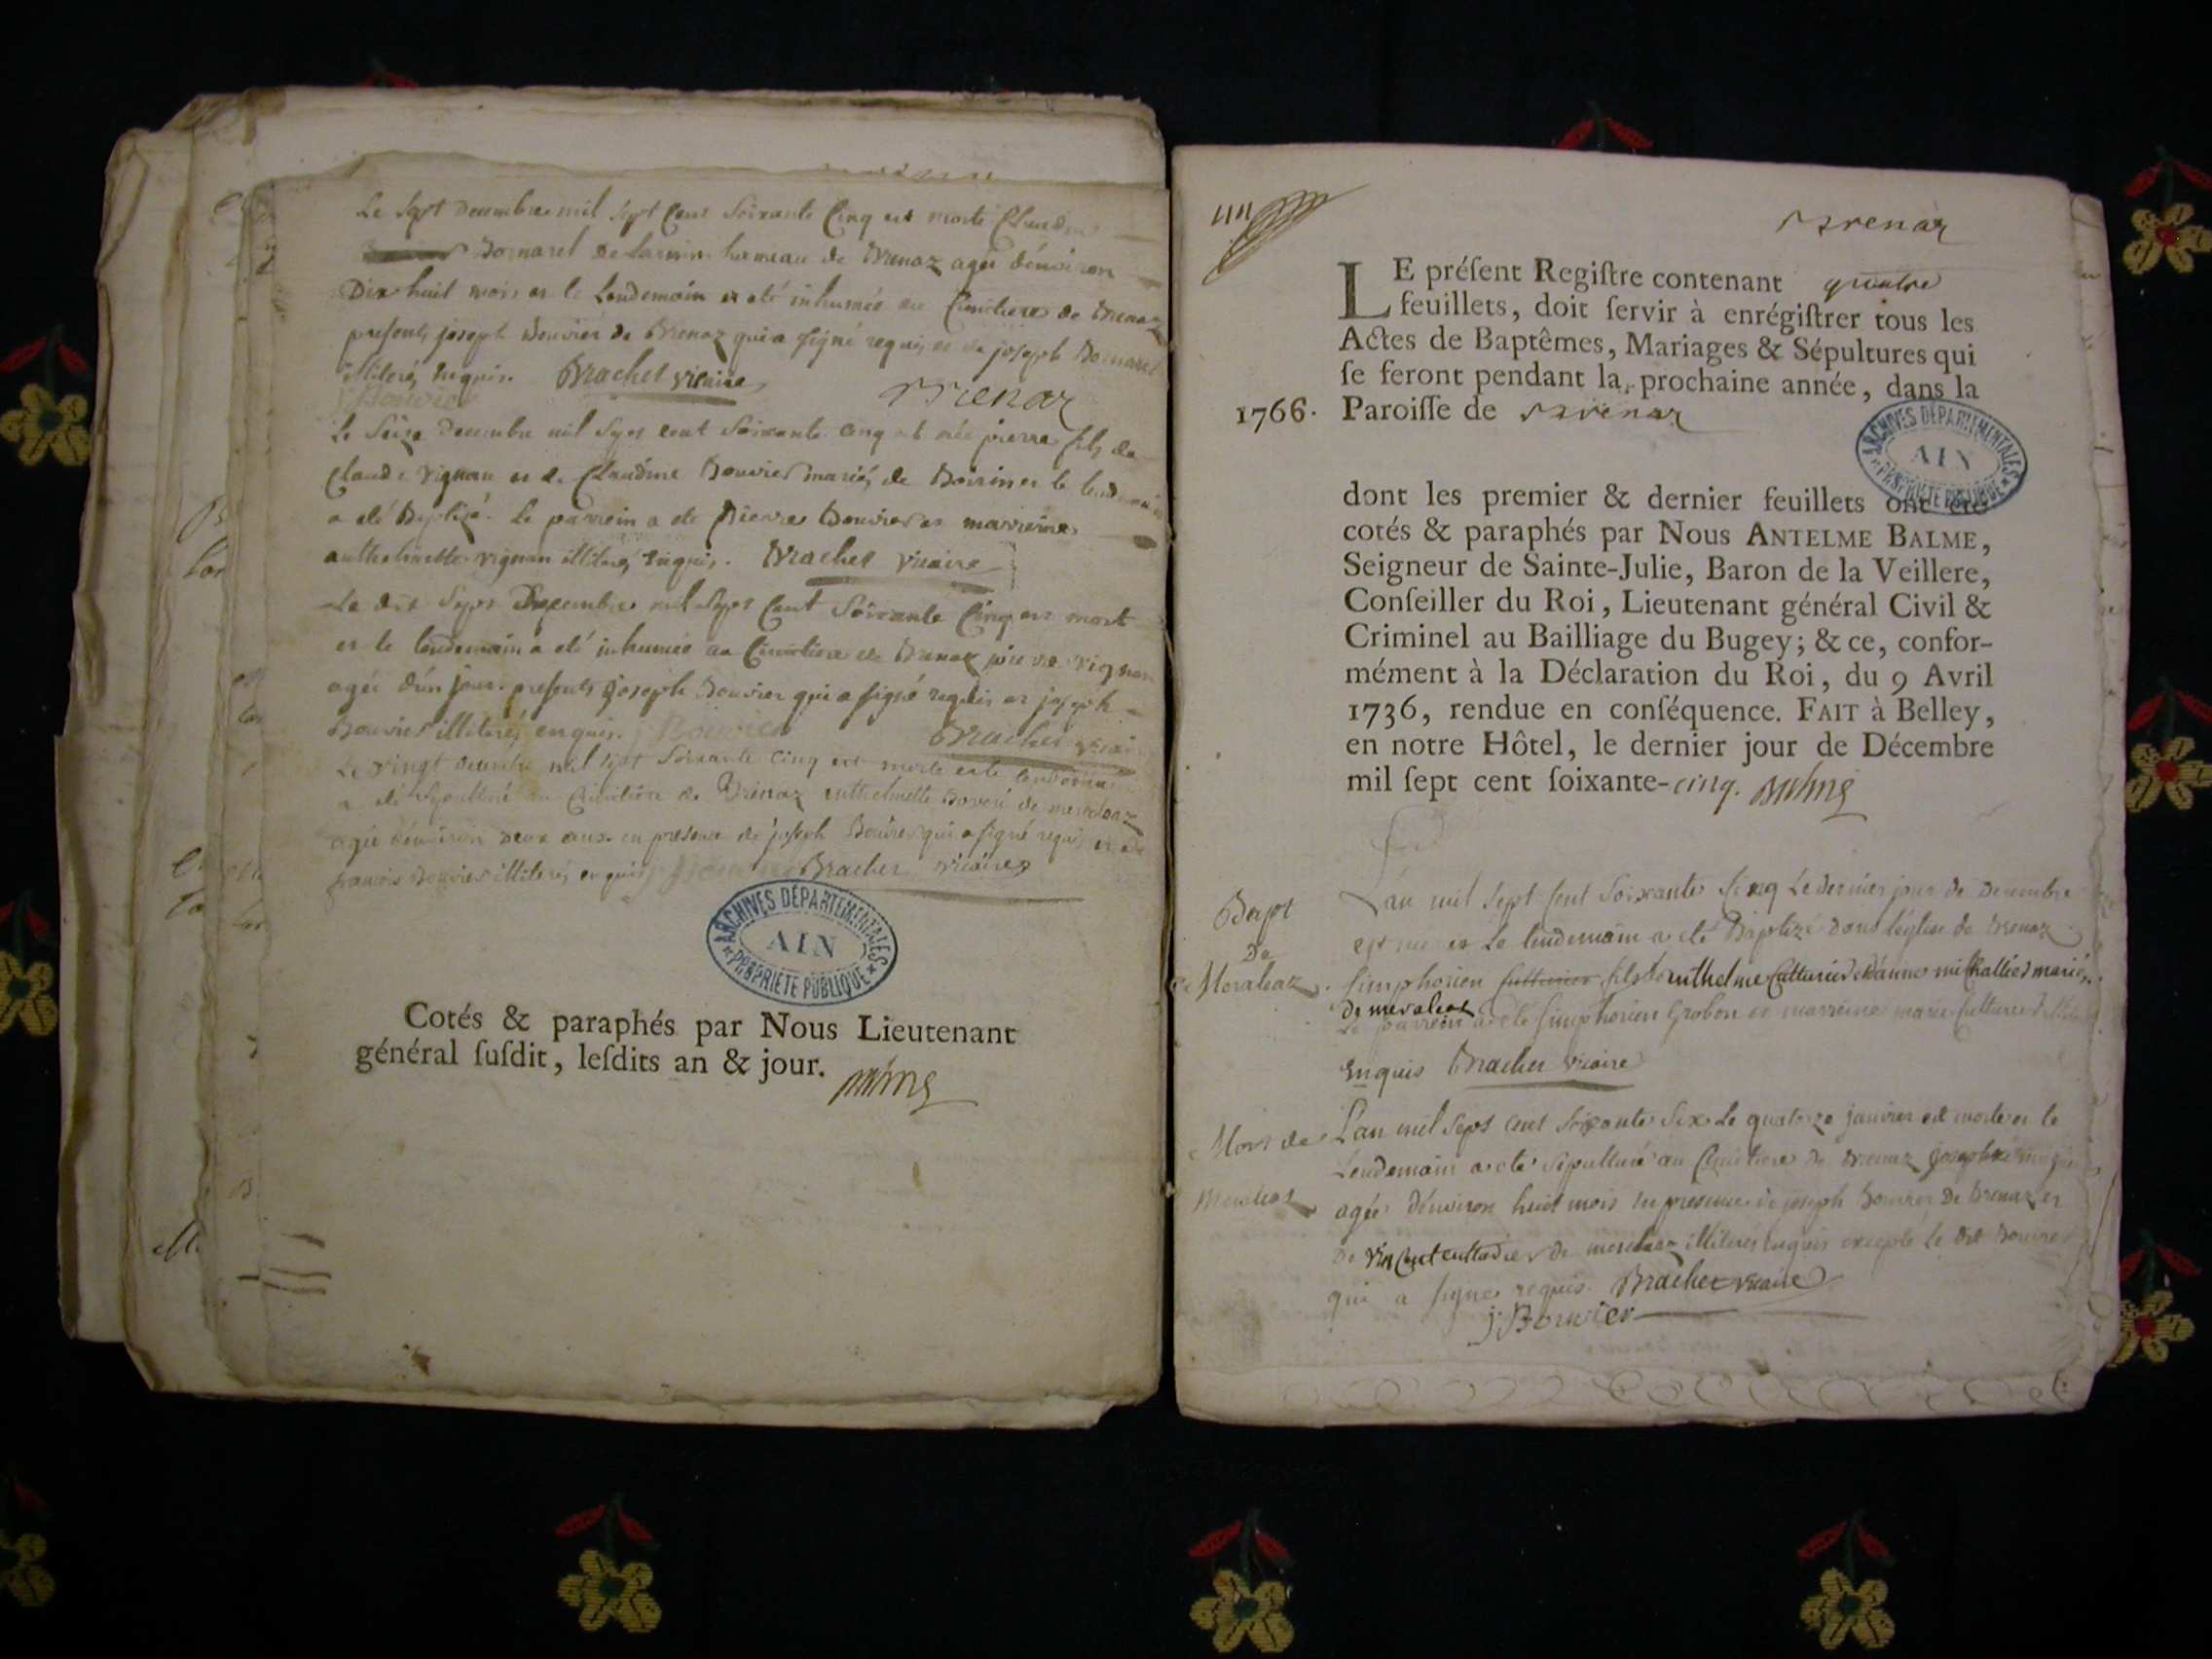 Le sept decembre mil sept cent soixante cinq est morte Claudine
Bornarel de hameau de Brenaz agée d'environ
Dix huit mois et le Lendemain a eté inhumée au Cimetiere de Brenaz
presents joseph Bouvier de Brenaz qui a signé requis et de joseph Bornarel
illiteré enquis. Brachet vicaire
Bouvier
Brenaz
Le seize decembre mil sept cent soixante cinq est née pierre fils de
Claude vignan et de Claudine Bouvier mariés de et le lendemain
a eté Baptizé. Le parrein a eté Pierre Bouvier et marreine
anthelmette vignan illiterés enquis. Brachet vicaire
Le dix sept Decembre mil sept Cent soixante Cinq est mort
et le lendemain a eté inhumée au Cimetiere de Brenaz pierre vignan
agée d'un jour. presents joseph Bouvier qui a signé requis et joseph
Bouvier illiterés enquis. Bouvier Brachet vicaire
Le vingt decembre mil sept soixante cinq est morte et le lendemain
a eté sepulturé au Cimetiere de Brenaz anthelmette de meraleaz
agée d'environ deux ans. en presence de joseph Bouvier qui a signé requis et de
francois Bouvier illiterés enquis Brachet vicaire
ARCHIVES DÉPARTEMENTALES
AIN
PROPRIÉTÉ PUBLIQUE
Cotés & paraphés par Nous Lieutenant
général ſuſdit, leſdits an & jour.
Balme
Brenaz
LE préſent Regiſtre contenant quatre
feuillets, doit ſervir à enrégiſtrer tous les
Actes de Baptêmes, Mariages & Sépultures qui
ſe feront pendant la prochaine année, dans la
1766. Paroiſſe de Brenaz
ARCHIVES DÉPARTEMENTALES
AIN
PROPRIÉTÉ PUBLIQUE
dont les premier & dernier feuillets ont été
cotés & paraphés par Nous ANTELME BALME,
Seigneur de Sainte-Julie, Baron de la Veillere,
Conſeiller du Roi, Lieutenant général Civil &
Criminel au Bailliage du Bugey; & ce, confor-
mément à la Déclaration du Roi, du 9 Avril
1736, rendue en conſéquence. FAIT à Belley,
en notre Hôtel, le dernier jour de Décembre
mil ſept cent ſoixante-cinq. Balme
Bapt
De
Meraleaz
L'an mil sept cent soixante cinq Le dernier jour de Decembre
est née et Le lendemain a eté Baptizé dans l'église de Brenaz
simphorien fils de anthelme Cuttarier et d'anne michallier mariés
de meraleaz
Le parrein a eté simphorien Grobon et marreine marie Cuttarier
Enquis Brachet vicaire
Mort de
Meraleaz
L'an mil sept cent soixante six Le quatorze janvier est morte et le
Lendemain a eté sepulturé au Cimetiere de Brenaz
agée d'environ huit mois en presence de joseph Bouvier de Brenaz et
de vincent cuttarier de meraleaz illiterés enquis excepté le dit Bouvier
qui a signé requis. Brachet vicaire
j: Bouvier